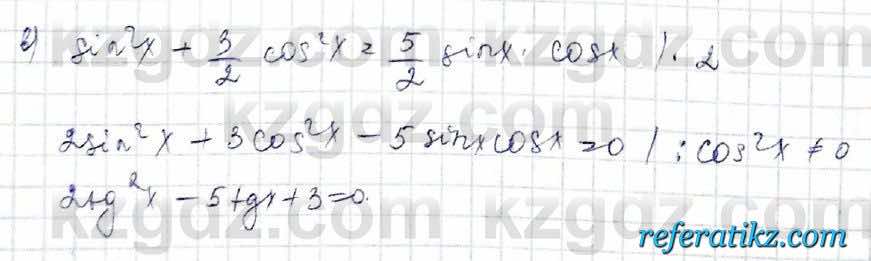 2) sin²x + 3/2 cos²x = 5/2 sinx · cosx | · 2
2sin²x + 3cos²x - 5sinxcosx = 0 | : cos²x ≠ 0
2tg²x - 5tgx + 3 = 0.
kzgdz.com
referatikz.com